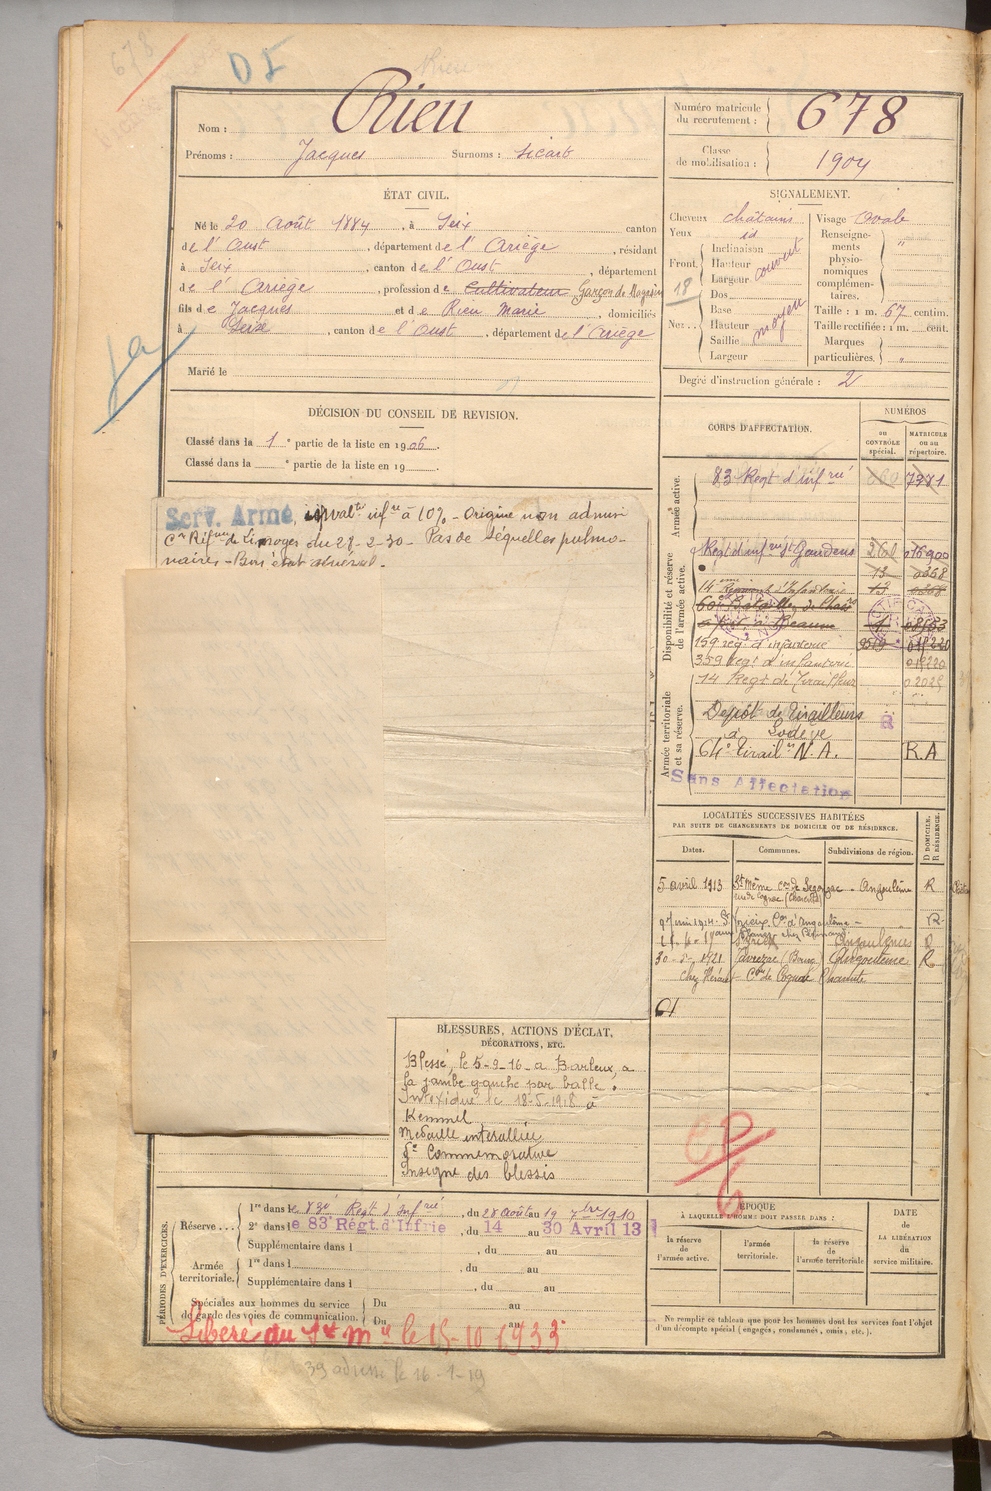 678
DI
Nom : Rieu
Prénoms : Jacques Surnoms : Sicart
Numéro matricule du recrutement : 678
Classe de mobilisation : 1904
ÉTAT CIVIL.
Né le 20 Août 1884, à Seix canton
de l'Oust, département de l'Ariège, résidant
à Seix, canton de l'Oust, département
de l'Ariège, profession de Cultivateur Garçon de Magasin
fils de Jacques et de Rieu Marie, domiciliés
à Seix, canton de l'Oust, département de l'Ariège
Marié le
SIGNALEMENT.
Cheveux châtains
Yeux id
Front. Inclinaison Hauteur Largeur couvert
18
Nez... Dos Base Hauteur Saillie Largeur moyen
Visage Ovale
Renseignements physionomiques complémentaires. "
Taille : 1 m. 67 centim.
Taille rectifiée : 1 m. cent.
Marques particulières. "
Degré d'instruction générale : 2
DÉCISION DU CONSEIL DE REVISION.
Classé dans la 1e partie de la liste en 1906.
Classé dans la e partie de la liste en 19
Serv. Armé, invalté infre à 10% - Origine non admise
Con Rifme de Limoges du 28-2-30 - Pas de séquelles pulmo-
naires - Bon état général -
CORPS D'AFFECTATION.
NUMÉROS
au CONTRÔLE spécial.
MATRICULE ou au répertoire.
Armée active.
83 Regt d'infrie 7371
Disponibilité et réserve de l'armée active.
Regt d'infrie St Gaudens 016900
13 0368
14eme Régiment d'Infanterie 13
60e Bataillon de Chasrs
à pied à Beaune
159 reg. d'infanterie
359 Regt d'infanterie
14 Regt de Tirailleur
Armée territoriale et sa réserve.
Depôt de tirailleurs
à Lodève
64e tirailrs N.A. R.A
Sans Affectation
LOCALITÉS SUCCESSIVES HABITÉES
PAR SUITE DE CHANGEMENTS DE DOMICILE OU DE RÉSIDENCE.
Dates. Communes. Subdivisions de région. D DOMICILE. R RÉSIDENCE.
5 avril 1913 St Même con de Segonzac - Angoulême R
(Charente)
Con d'Angoulême - R
Angoulême R
30 1921 Angoulême R
Con de Cognac Charente
BLESSURES, ACTIONS D'ÉCLAT,
DÉCORATIONS, ETC.
Blessé, le 5-9-16 a Barleux, a
la jambe gauche par balle.
Intoxiqué le 18-5-1918 à
Kemmel
Médaille interalliée
de Commemorative
Insigne des blessés
PÉRIODES D'EXERCICES.
Réserve... 1re dans le 83e Regt d'Infrie, du 28 août au 19 7bre 1910
2e dans le 83e Régt. d'Infrie, du 14 au 30 Avril 13
Supplémentaire dans l , du au
Armée territoriale. 1re dans l , du au
Supplémentaire dans l , du au
Spéciales aux hommes du service de garde des voies de communication. Du au
Du au
Libéré du Sce mre le 15-10-1933
ÉPOQUE
À LAQUELLE L'HOMME DOIT PASSER DANS :
la réserve de l'armée active.
l'armée territoriale.
la réserve de l'armée territoriale
DATE de LA LIBÉRATION du service militaire.
Ne remplir ce tableau que pour les hommes dont les services font l'objet
d'un décompte spécial (engagés, condamnés, omis, etc.).
39 adresse le 16-1-19